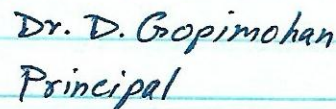 Dr. D. Gopimohan
Principal